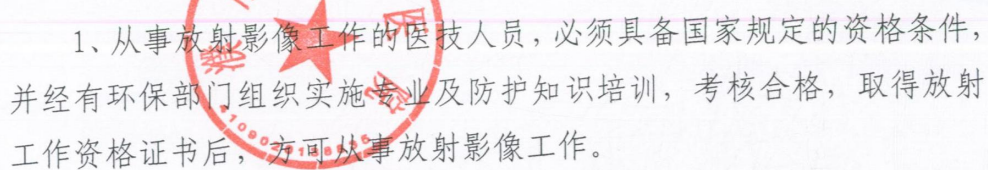 1、从事放射影像工作的医技人员，必须具备国家规定的资格条件，
并经有环保部门组织实施专业及防护知识培训，考核合格，取得放射
工作资格证书后，方可从事放射影像工作。